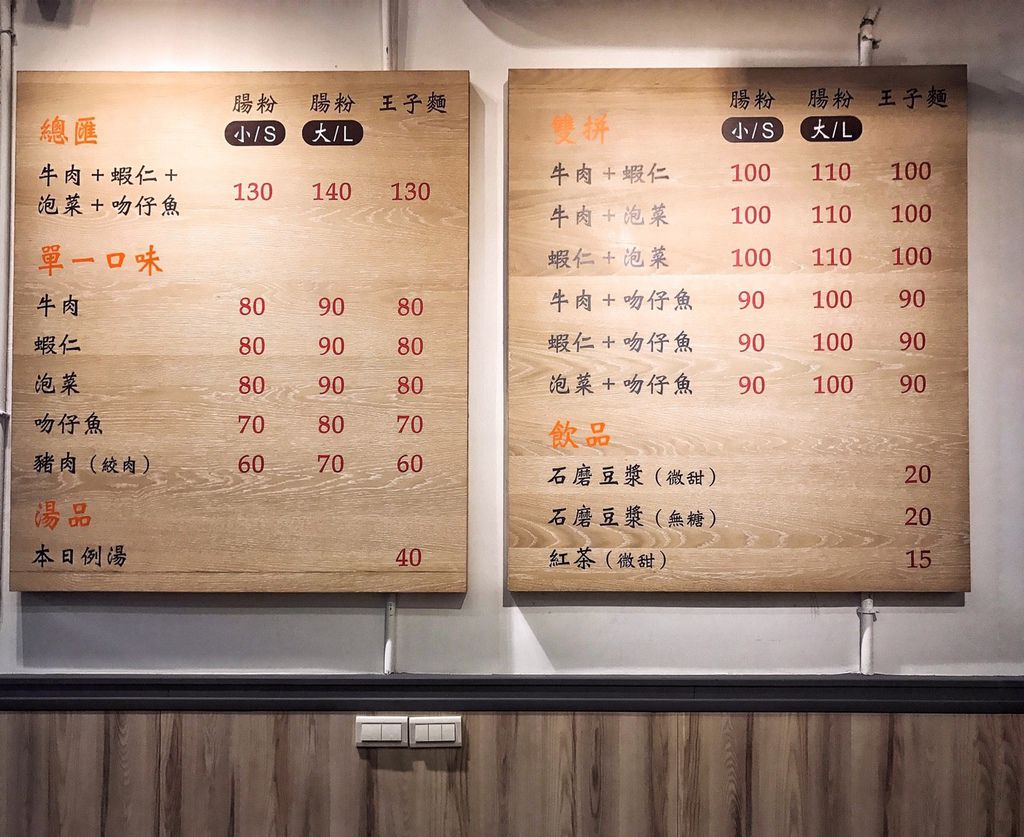 腸粉 腸粉 王子麵
總匯 小/S 大/L
牛肉+蝦仁+
泡菜+吻仔魚 130 140 130
單一口味
牛肉 80 90 80
蝦仁 80 90 80
泡菜 80 90 80
吻仔魚 70 80 70
豬肉(絞肉) 60 70 60
湯品
本日例湯 40
腸粉 腸粉 王子麵
雙拼 小/S 大/L
牛肉+蝦仁 100 110 100
牛肉+泡菜 100 110 100
蝦仁+泡菜 100 110 100
牛肉+吻仔魚 90 100 90
蝦仁+吻仔魚 90 100 90
泡菜+吻仔魚 90 100 90
飲品
石磨豆漿(微甜) 20
石磨豆漿(無糖) 20
紅茶(微甜) 15